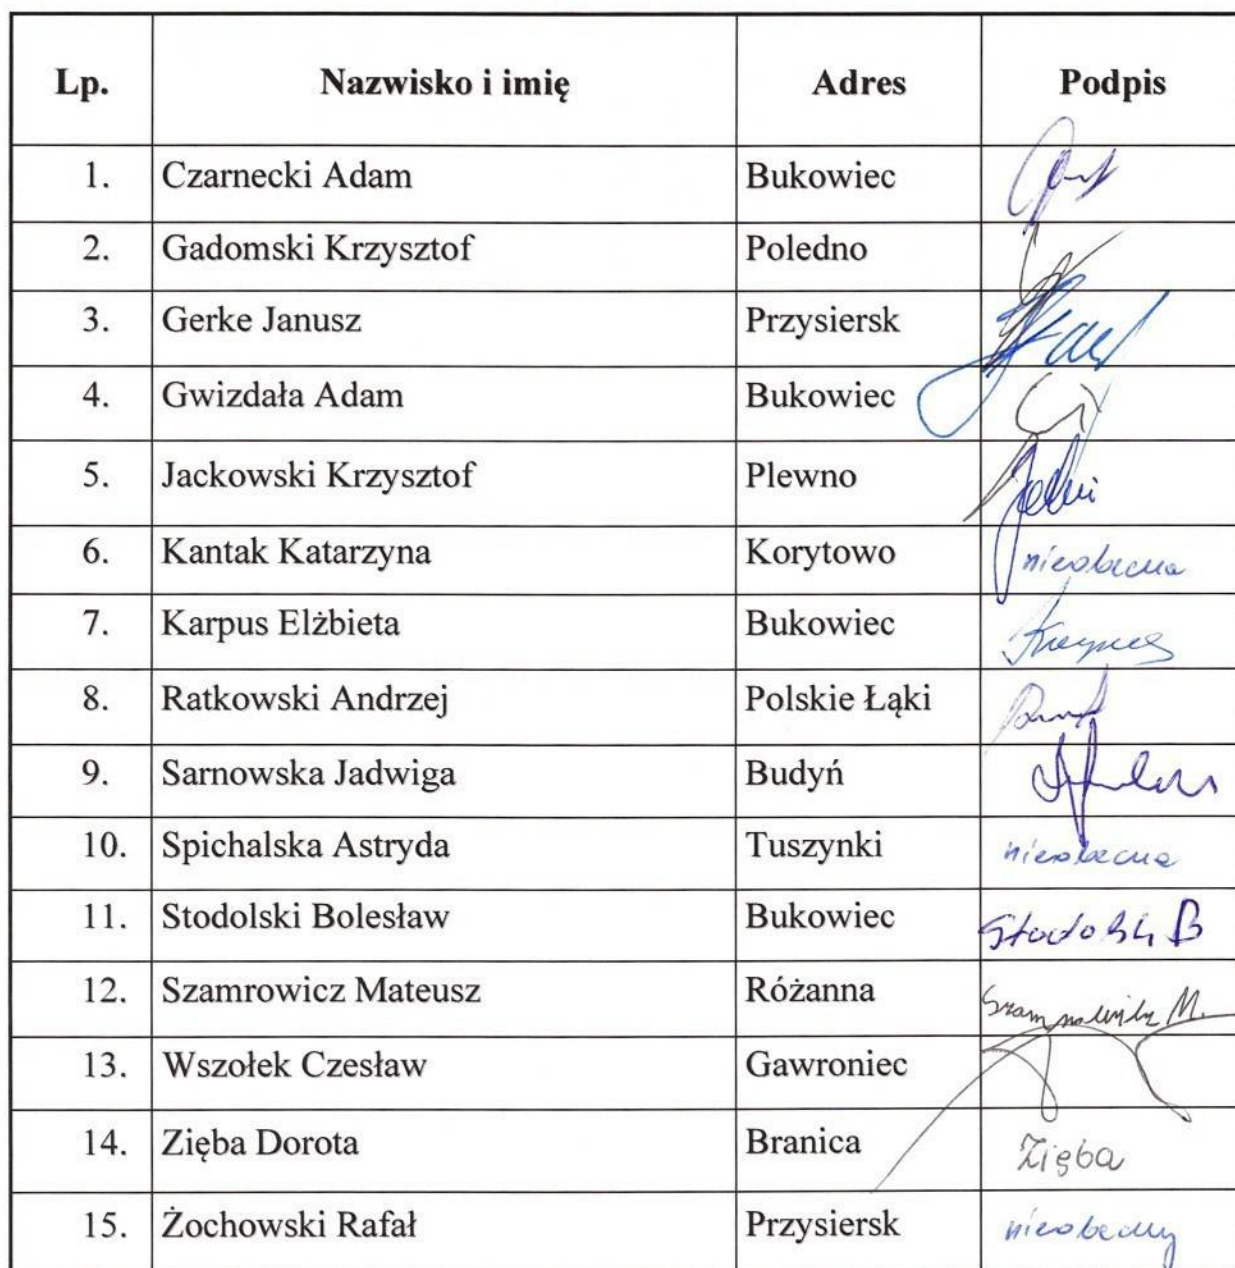 Lp. Nazwisko i imię Adres Podpis
1. Czarnecki Adam Bukowiec
2. Gadomski Krzysztof Poledno
3. Gerke Janusz Przysiersk
4. Gwizdała Adam Bukowiec
5. Jackowski Krzysztof Plewno
6. Kantak Katarzyna Korytowo nieobecna
7. Karpus Elżbieta Bukowiec
8. Ratkowski Andrzej Polskie Łąki
9. Sarnowska Jadwiga Budyń
10. Spichalska Astryda Tuszynki nieobecna
11. Stodolski Bolesław Bukowiec Stodolski B
12. Szamrowicz Mateusz Różanna M.
13. Wszołek Czesław Gawroniec
14. Zięba Dorota Branica Zięba
15. Żochowski Rafał Przysiersk nieobecny